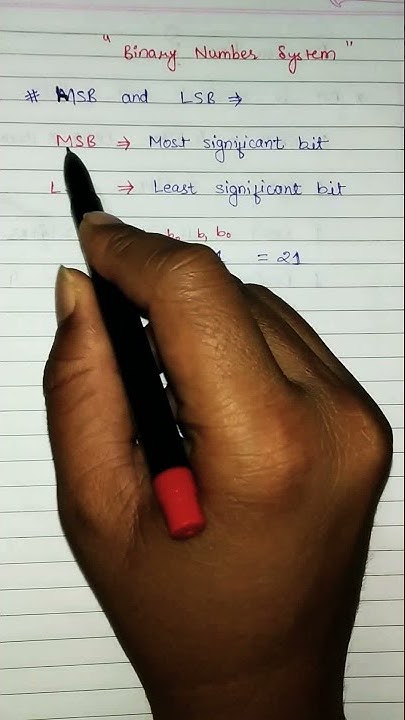 "Binary Number System"
# MSB and LSB ⇒
MSB ⇒ Most significant bit
L ⇒ Least significant bit
b₁ b₀
1 = 21